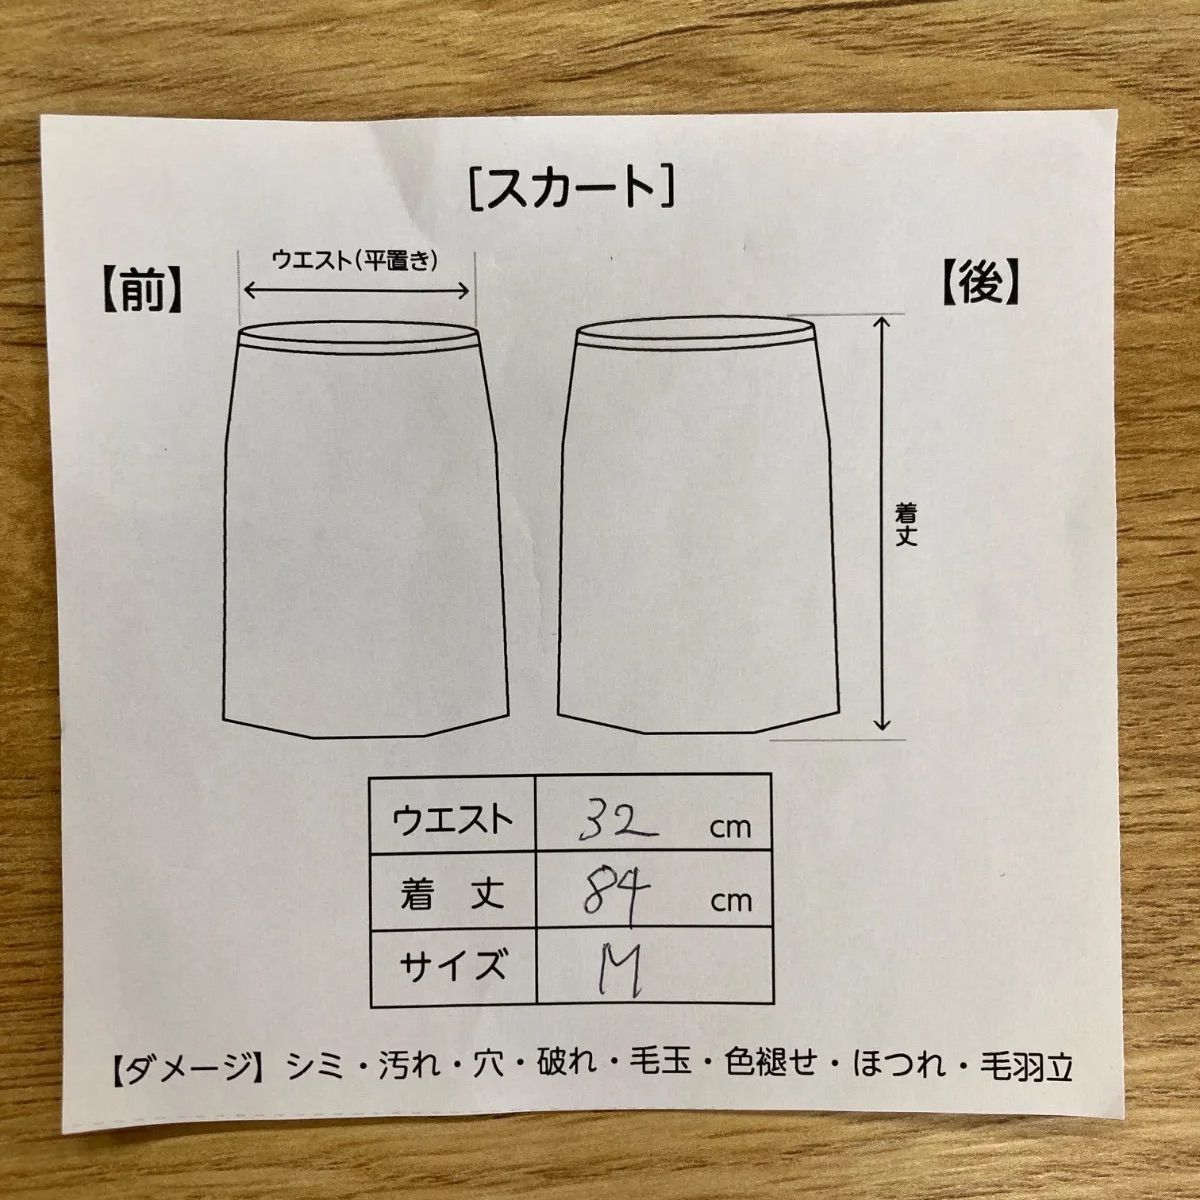 [スカート]
【前】
ウエスト(平置き)
【後】
着丈
ウエスト 32 cm
着丈 84 cm
サイズ M
【ダメージ】シミ・汚れ・穴・破れ・毛玉・色褪せ・ほつれ・毛羽立